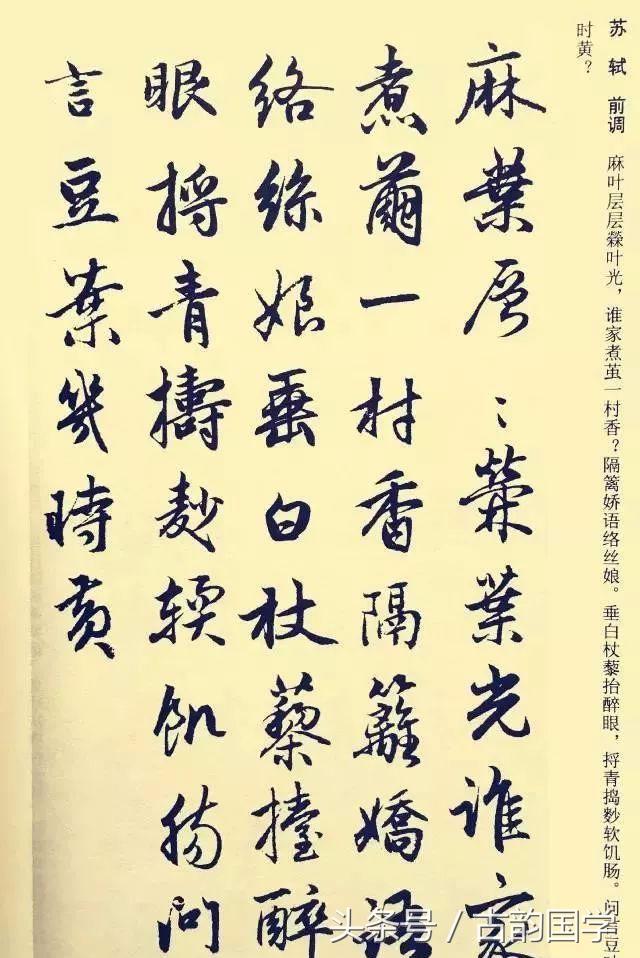 苏 轼 前调 麻叶层层檾叶光，谁家煮茧一村香？隔篱娇语络丝娘。 垂白杖藜抬醉眼，捋青捣麨软饥肠。问言豆
时黄？
麻葉層〻檾葉光誰家
煮繭一村香隔籬嬌語
絡絲娘垂白杖藜擡醉
眼捋青擣麨輭飢腸問
言豆葉幾時黃
头条号 / 古韵国学